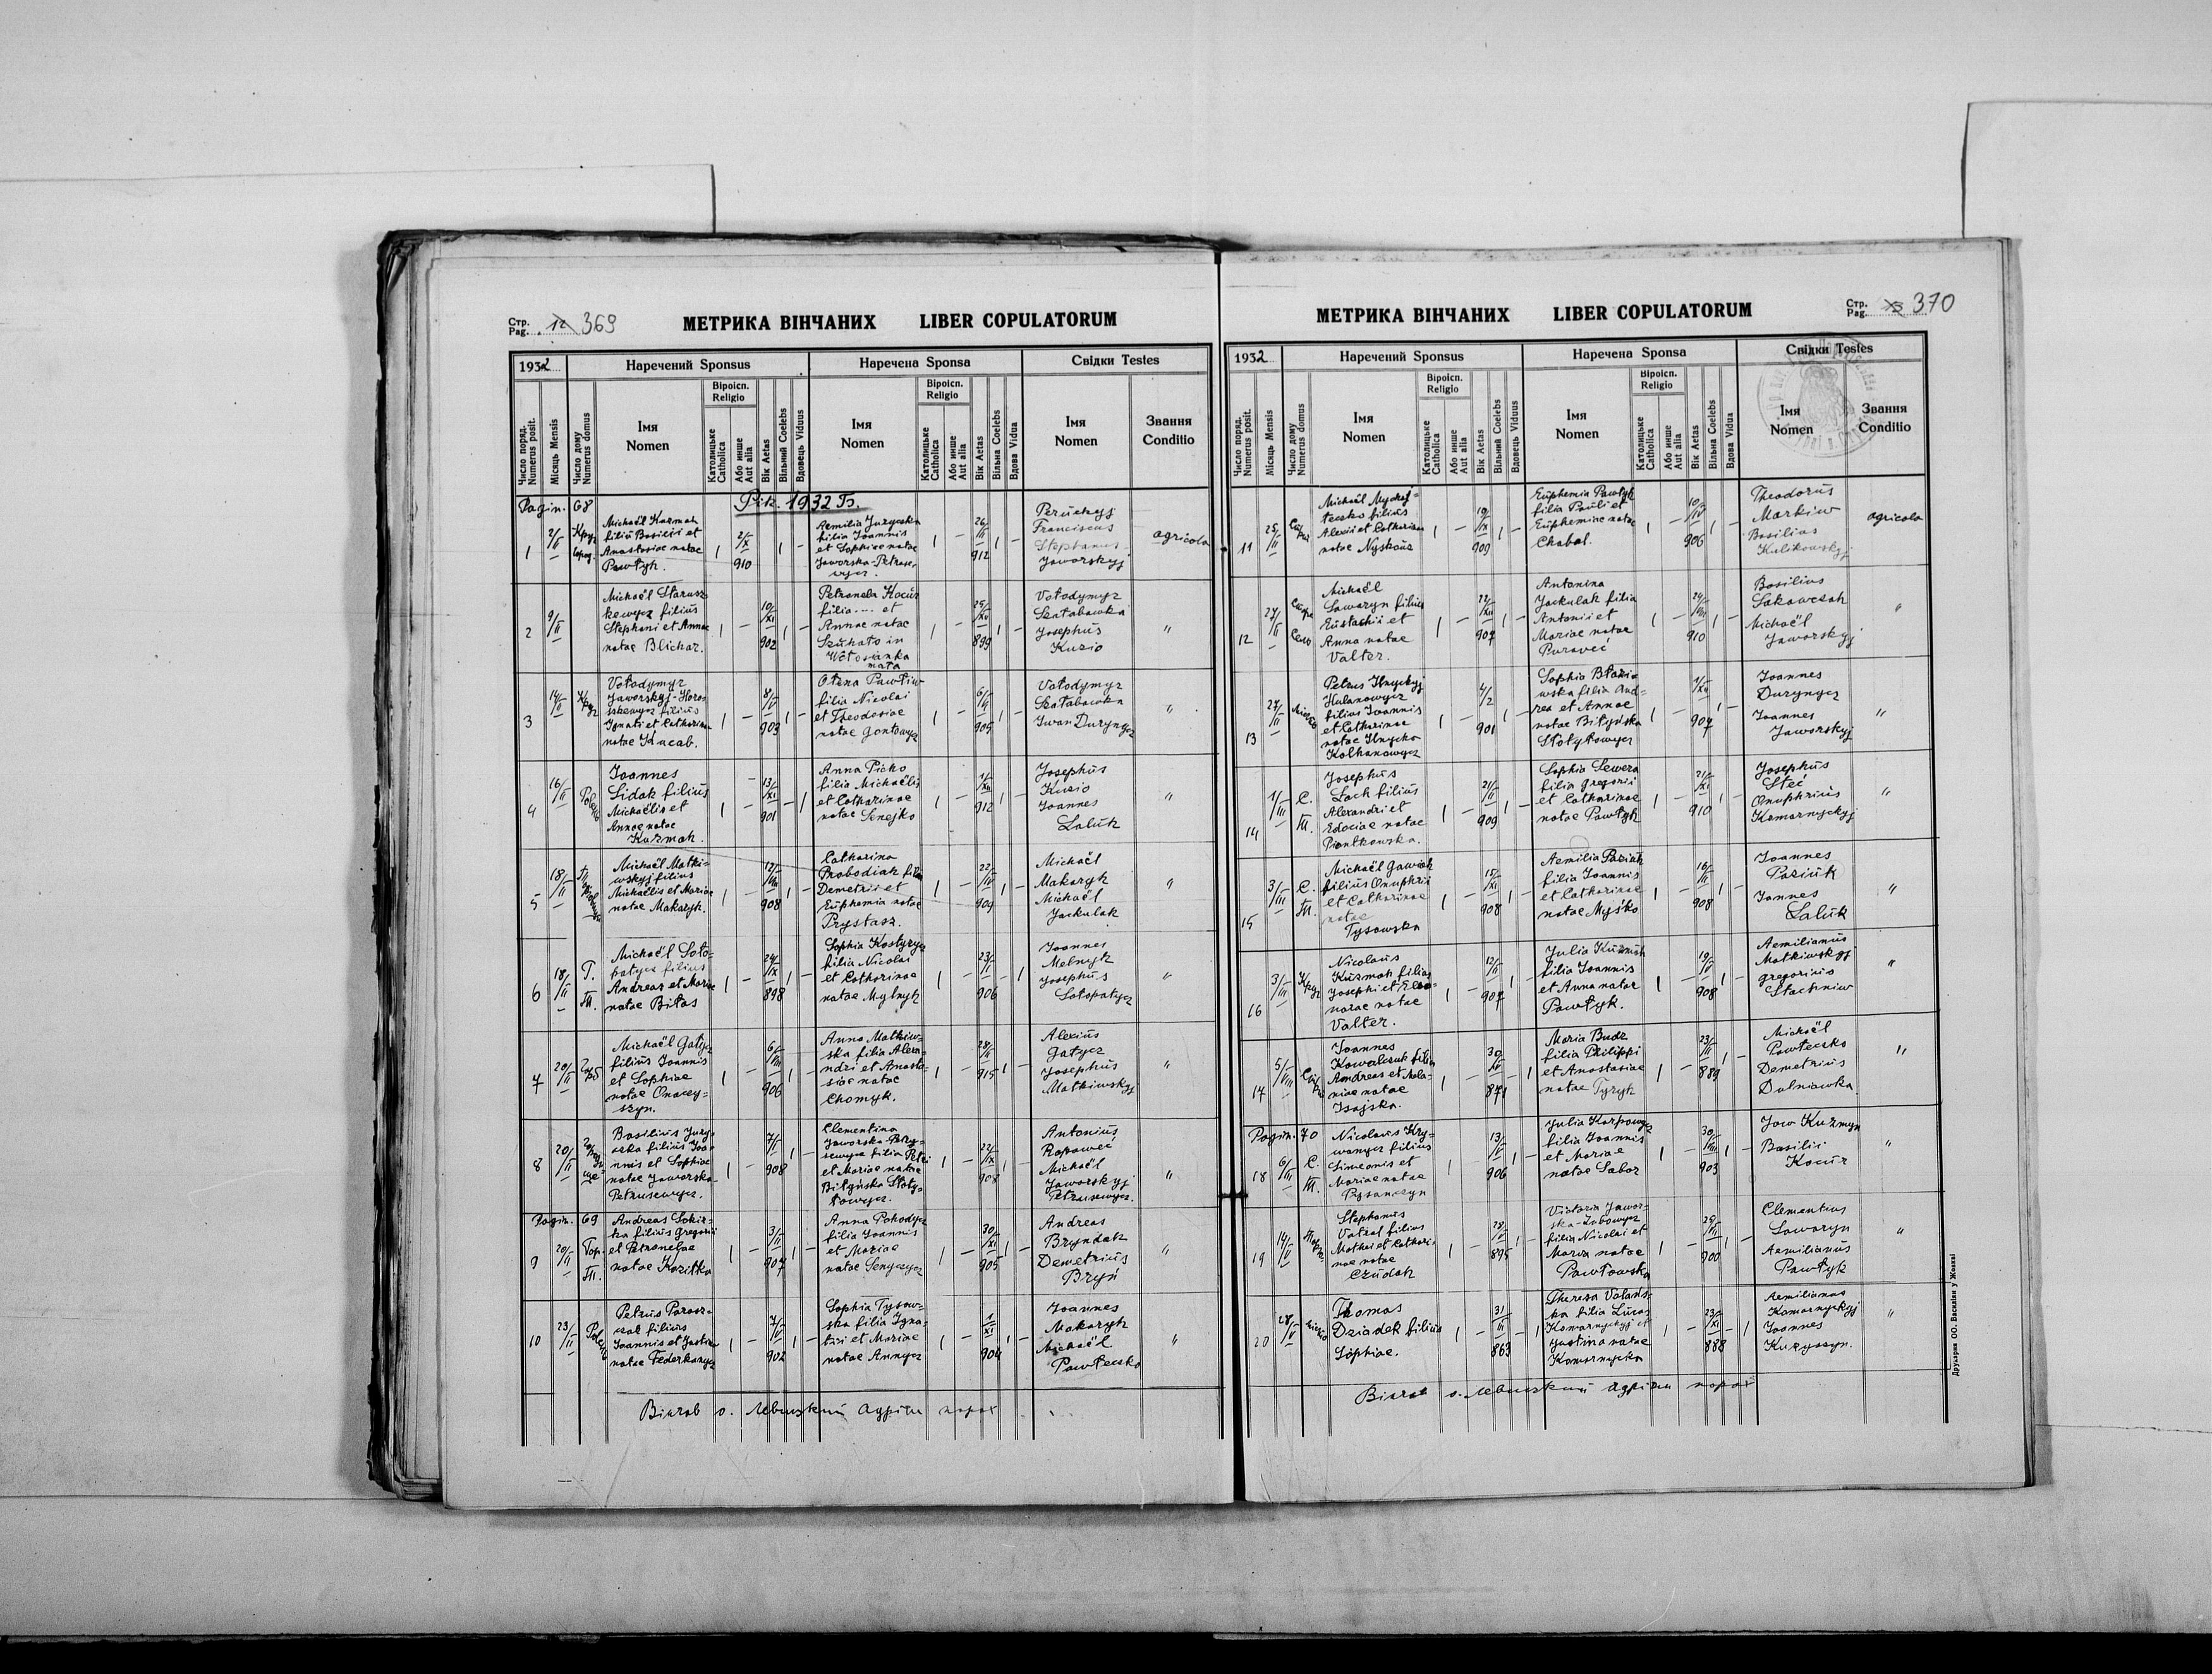 Стр.
Pag. 12 369
МЕТРИКА ВІНЧАНИХ LIBER COPULATORUM
1932
Наречений Sponsus
Наречена Sponsa
Свідки Testes
Число поряд.
Numerus posit.
Місяць Mensis
Число дому
Numerus domus
Імя
Nomen
Віроісп.
Religio
Католицьке
Catholica
Або инше
Aut alia
Вік Aetas
Вільний Coelebs
Вдовець Viduus
Імя
Nomen
Віроісп.
Religio
Католицьке
Catholica
Або инше
Aut alia
Вік Aetas
Вільна Coelebs
Вдова Vidua
Імя
Nomen
Звання
Conditio
Pagin. 68
Рік 1932 Б.
1
2/II
Michaël Kuzmak
filii Basilii et
Anastasiae natae
Pawłyk.
2/X
910
Aemilia Juzycska
filia Joannis
et Sophiae natae
Jaworska-Petrase-
wycz.
26/II
912
Franciscus
Stephanus
Jaworskyj
agricola
2
9/II
Michaël Starusz-
kewycz filius
Stephani et Annae
natae Blichar.
10/XI
902
Petronela Kocur
filia ... et
Annae natae
Szuhato in
Wołosianka
mała
25/XII
899
Wołodymyr
Szatabawka
Josephus
Kuzio
"
3
14/II
Wołodymyr
Jaworskyj-Horos-
zkewycz filius
Ignati et Catharina
natae Kucab.
8/V
903
Ołena Pawliw
filia Nicolai
et Theodosiae
natae Gontawycz
6/VI
905
Wołodymyr
Szatabawka
Iwan Durynycz
"
4
16/II
Joannes
Sidak filius
Michaëlis et
Annae natae
Kuzmak.
13/XI
901
Anna Picko
filia Michaëlis
et Catharinae
natae Senejko
1/XII
912
Josephus
Kuzio
Joannes
Laluk
"
5
18/II
Michaël Matki-
wskyj filius
Michaëlis et Mariae
natae Makaryk.
12/VIII
908
Catharina
Probodiak filia
Demetrii et
Euphemia natae
Prystasz.
22/IV
909
Michaël
Makaryk
Michaël
Jackulak
"
6
18/II
Г.
Ш.
Michaël Soło-
patycz filius
Andreas et Mariae
natae Bitas
24/IX
898
Sophia Kostyrycz
filia Nicolai
et Catharinae
natae Mylnyk
23/I
906
Joannes
Melnyk
Josephus
Sołopatycz
"
7
20/II
Michaël Gatycz
filius Joannis
et Sophiae
natae Onacy-
szyn.
6/VIII
906
Anna Matkiw-
ska filia Alexa-
ndri et Anasta-
siae natae
Chomyk.
28/II
915
Alexius
Gatycz
Josephus
Matkiwskyj
"
8
20/II
Basilius Juzy-
filius Joa-
nnis et Sophiae
natae Jaworska
Petrusewycz.
7/I
908
Clementina
Jaworska-Petry-
sewycz filia Petri
et Mariae natae
Bilynska Stoty-
łowycz.
22/IX
908
Antonius
Ropaweć
Michaël
Jaworskyj
Petrusewycz.
"
Pagin. 69
9
20/II
Гор.
Ш.
Andreas Sokir-
ka filius Gregorii
et Petronelae
natae Kozitka
3/II
907
Anna Pohodycz
filia Joannis
et Mariae
natae Senyczycz
30/XI
905
Andreas
Bryndak
Demetrius
Bryń
"
10
23/II
Petrus Parasz-
czak filius
Joannis et Justina
natae Federkanycz
7/V
902
Sophia Tysow-
ska filia Igna-
tii et Mariae
natae Annycz
1/XI
904
Joannes
Makaryk
Michaël
Pawłecsko
"
Вінчав о. Левицкий Адріян парох
Стр.
Pag. 13 370
МЕТРИКА ВІНЧАНИХ LIBER COPULATORUM
1932
Наречений Sponsus
Наречена Sponsa
Свідки Testes
Число поряд.
Numerus posit.
Місяць Mensis
Число дому
Numerus domus
Імя
Nomen
Віроісп.
Religio
Католицьке
Catholica
Або инше
Aut alia
Вік Aetas
Вільний Coelebs
Вдовець Viduus
Імя
Nomen
Віроісп.
Religio
Католицьке
Catholica
Або инше
Aut alia
Вік Aetas
Вільна Coelebs
Вдова Vidua
Імя
Nomen
Звання
Conditio
11
25/II
filius
Alexii et Catharinae
natae Nyskouz
19/IX
909
Euphemia Pawłyk
filia Pauli et
Euphemiae natae
Chabal.
10/IV
906
Theodorus
Markiw
Basilius
Kulikowskyj
agricola
12
27/II
Michaël
Laworyn filius
Eustachii et
Anna natae
Valter.
22/XII
907
Antonina
Jackulak filia
Antonii et
Mariae natae
Puraveć
24/VIII
910
Basilius
Sakawczak
Michaël
Jaworskyj
"
13
27/II
Petrus Ilnyckyj
Kulanowycz
filius Joannis
et Catharinae
natae Ilnycka
Kolhanowycz
4/2
901
Sophia Btazi-
wska filia And-
rea et Annae
natae Bitynska
Stotyłowycz
1/XII
907
Joannes
Durynycz
Joannes
Jaworskyj
"
14
1/III
С.
Ш.
Josephus
Lach filius
Alexandri et
Edociae natae
Piontkowska.
21/II
909
Sophia Sewera
filia Gregorii
et Catharinae
natae Pawłyk
21/XI
910
Josephus
Steć
Onuphrius
Komarnyckyj
"
15
3/III
С.
Ш.
Michaël Gawiak
filius Onuphrii
et Catharinae
natae
Tysowska
15/XI
908
Aemilia Paziuk
filia Joannis
et Catharinae
natae Myśko
16/III
908
Joannes
Paziuk
Joannes
Laluk
"
16
3/III
Nicolaus
Kuzmak filius
Josephi et Eleo-
norae natae
Valter.
12/II
907
Julia Kuzmak
filia Joannis
et Anna natae
Pawłyk.
19/V
908
Aemilianus
Matkiwskyj
Gregorius
Stachniw
"
17
5/VIII
Joannes
Kowalczuk filius
Andreas et Mela-
niae natae
Isajska.
30/IV
871
Maria Budz
filia Philippi
et Anastasiae
natae Tyzyk
23/II
889
Michaël
Pawłecsko
Demetrius
Dulniawka
"
Pagin. 70
18
6/III
С.
Ш.
Nicolaus Kry-
wanycz filius
Simeonis et
Mariae natae
Pysanczyn
13/V
906
Julia Karpowycz
filia Joannis
et Mariae
natae Sabor
30/VIII
903
Jow Kuzmyn
Basilii
Kocur
"
19
14/V
Stephanus
Vatral filius
Mathei et Cathari-
nae natae
Czudak
28/V
895
Victoria Jawor-
ska-Zubowycz
filia Nicolai et
Maria natae
Pawłowska
29/III
900
Clementius
Laworyn
Aemilianus
Pawłyk
"
20
28/V
Thomas
Dziadek filius
Sophiae.
31/III
863
Theresa Valans-
ka filia Lucas
Komarnyckyj et
Justina natae
Komarnycka
23/XI
888
Aemilianus
Komarnyckyj
Joannes
Kuryszyn.
"
Вінчав о. Левицкий Адріян парох
Друкарня ОО. Василіян у Жовкві